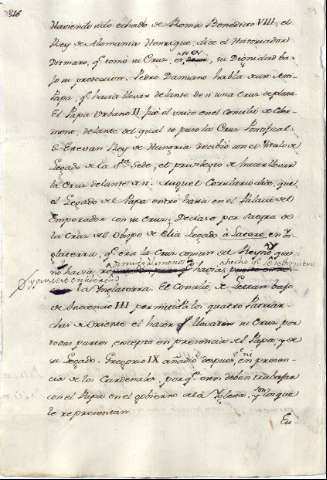 Haviendo sido echado de Roma Benedicto VIII, el
Rey de Alemania Henrique, dice el Historiador
Ditmaro, qe tomó su Cruz, y su Dignidad ba-
jo su proteccion. Pedro Damiano habla de un Anti-
Papa, qe hacia llevar delante de si una Cruz de plata.
El Papa Urbano II. hizo el suyo en el Concilio de Cler-
mont, delante del qual se puso la Cruz Pontifical.
S. Estevan Rey de Hungria recibió con el titulo de
Legado de la Sta Sede, el privilegio de hacer llevar
la Cruz delante de si. que
el Legado del Papa entró hasta en el Palacio del
Emperador con su Cruz. Declaró por
de la Cruz del Obispo de Legado à latere en In-
glaterra, qe era la Cruz comun del Reyno, y
no havia
la Ynglaterra. El Concilio de Letran bajo
de Inocencio III permitió à los quatro Patriar-
chas de Oriente el hacer llevar su Cruz por
todas partes excepto en presencia del Papa, y de
su Legado. Gregorio IX añadió despues, en presen-
cia de los Cardenales, porqe estos deben trabajar
con el Papa en el gobierno de la Yglesia, y
le representan.
En